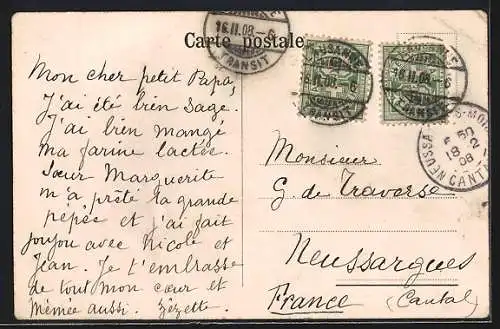 Carte postale.
LAUSANNE
16.II.08.-6
TRANSIT
LAUSANNE
16.II.08. 6
TRANSIT
LAUSANNE
16.II.08. 6
TRANSIT
6 50
18-2
08
NEUSSA
CANT
Mon cher petit Papa,
J'ai été bien sage.
J'ai bien mangé
ma farine lactée.
Sœur Marguerite
m'a prêté la grande
pépée et j'ai fait
joujou avec Nicole et
Jean. Je t'embrasse
de tout mon cœur et
Mémée aussi. Zézette.
Monsieur
G. de Traverse
Neussargues
France (Cantal)